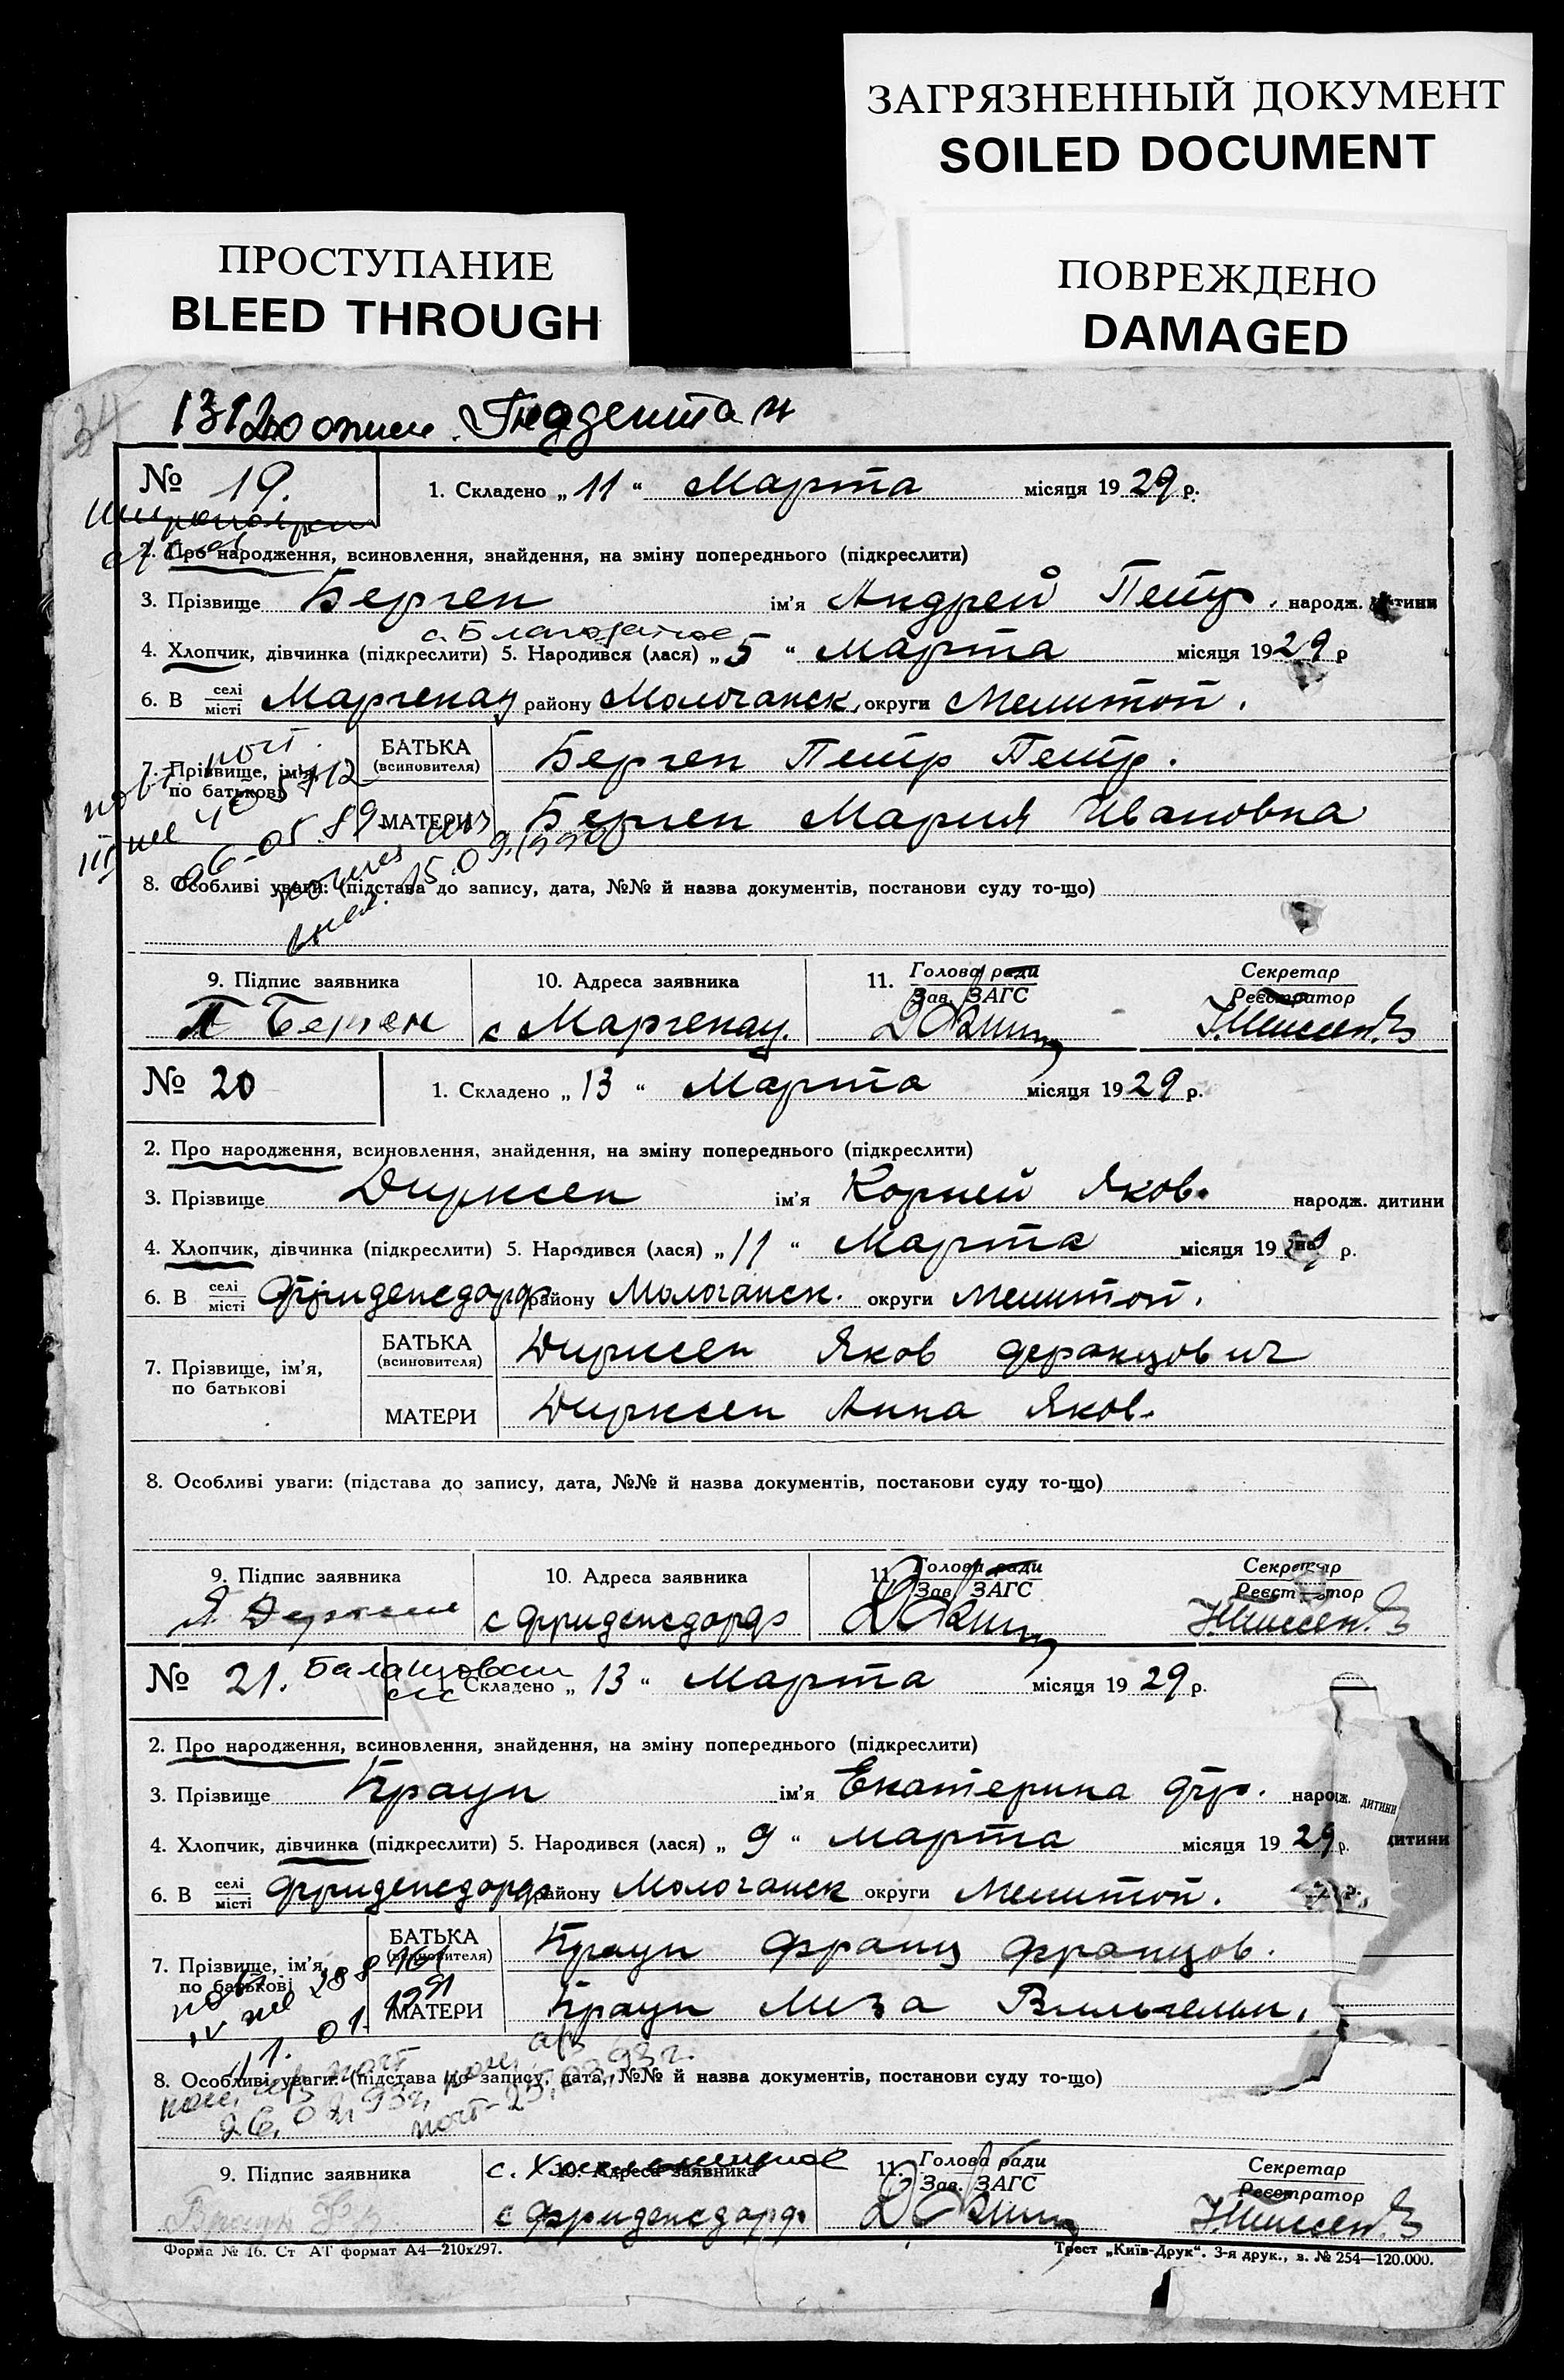 ЗАГРЯЗНЕННЫЙ ДОКУМЕНТ
SOILED DOCUMENT
ПРОСТУПАНИЕ
BLEED THROUGH
ПОВРЕЖДЕНО
DAMAGED
34
№ 19.
1. Складено „ 11 “ Марта місяця 1929 р.
2. Про народження, всиновлення, знайдення, на зміну попереднього (підкреслити)
3. Прізвище Берген ім'я Андрей Петр. народж. дитини
с. Благодатное
4. Хлопчик, дівчинка (підкреслити) 5. Народився (лася) „ 5 “ Марта місяця 1929 р
6. В селі місті Маргенау району Молочанск. округи Мелитоп.
7. Прізвище, ім'я, по батькові
БАТЬКА (всиновителя) Берген Петр Петр.
МАТЕРИ Берген Мария Ивановна
06-05.89
15.09.1990
8. Особливі уваги: (підстава до запису, дата, №№ й назва документів, постанови суду то-що)
9. Підпис заявника
10. Адреса заявника
11. Голова ради Зав. ЗАГС
Секретар Реєстратор
П Берген с Маргенау.
№ 20
1. Складено „ 13 “ Марта місяця 1929 р.
2. Про народження, всиновлення, знайдення, на зміну попереднього (підкреслити)
3. Прізвище Дирксен ім'я Корней Яков. народж. дитини
4. Хлопчик, дівчинка (підкреслити) 5. Народився (лася) „ 11 “ Марта місяця 19 р.
6. В селі місті Фриденсдорф району Молочанск. округи Мелитоп.
7. Прізвище, ім'я, по батькові
БАТЬКА (всиновителя) Дирксен Яков Францович
МАТЕРИ Дирксен Анна Яков.
8. Особливі уваги: (підстава до запису, дата, №№ й назва документів, постанови суду то-що)
9. Підпис заявника
10. Адреса заявника
11. Голова ради Зав. ЗАГС
Секретар Реєстратор
с Фриденсдорф
№ 21.
1. Складено „ 13 “ Марта місяця 1929 р.
2. Про народження, всиновлення, знайдення, на зміну попереднього (підкреслити)
3. Прізвище Браун ім'я Екатерина Фр. народж. дитини
4. Хлопчик, дівчинка (підкреслити) 5. Народився (лася) „ 9 “ Марта місяця 1929 р.
дитини
6. В селі місті Фриденсдорф району Молочанск округи Мелитоп.
7. Прізвище, ім'я, по батькові
БАТЬКА (всиновителя) Браун Франц Францов.
МАТЕРИ Браун Лиза Вильгельм.
11. 01. 1991
8. Особливі уваги: (підстава до запису, дата, №№ й назва документів, постанови суду то-що)
9. Підпис заявника
10. Адреса заявника
11. Голова ради Зав. ЗАГС
Секретар Реєстратор
Браун Фр. с Фриденсдорф
Форма № 16. Ст АТ формат А4—210х297.
Трест „Київ-Друк“. 3-я друк., з. № 254—120.000.